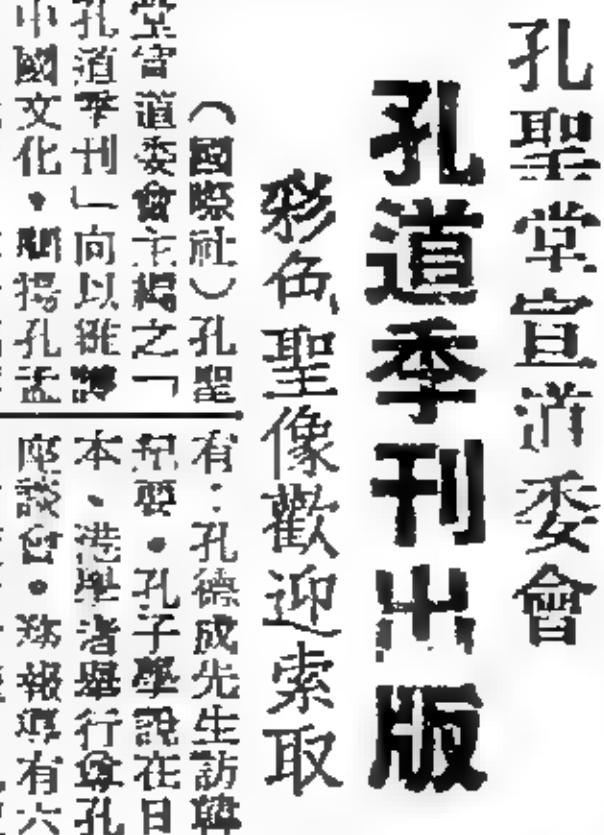 孔聖堂宣道委會
孔道季刊出版
彩色聖像歡迎索取
（國際社）孔聖
堂宣道委會主編之「
孔道季刊」向以維護
中國文化，闡揚孔孟
有：孔德成先生訪韓
紀要。孔子學說在日
本、港學者舉行尊孔
座談會。 報導有六